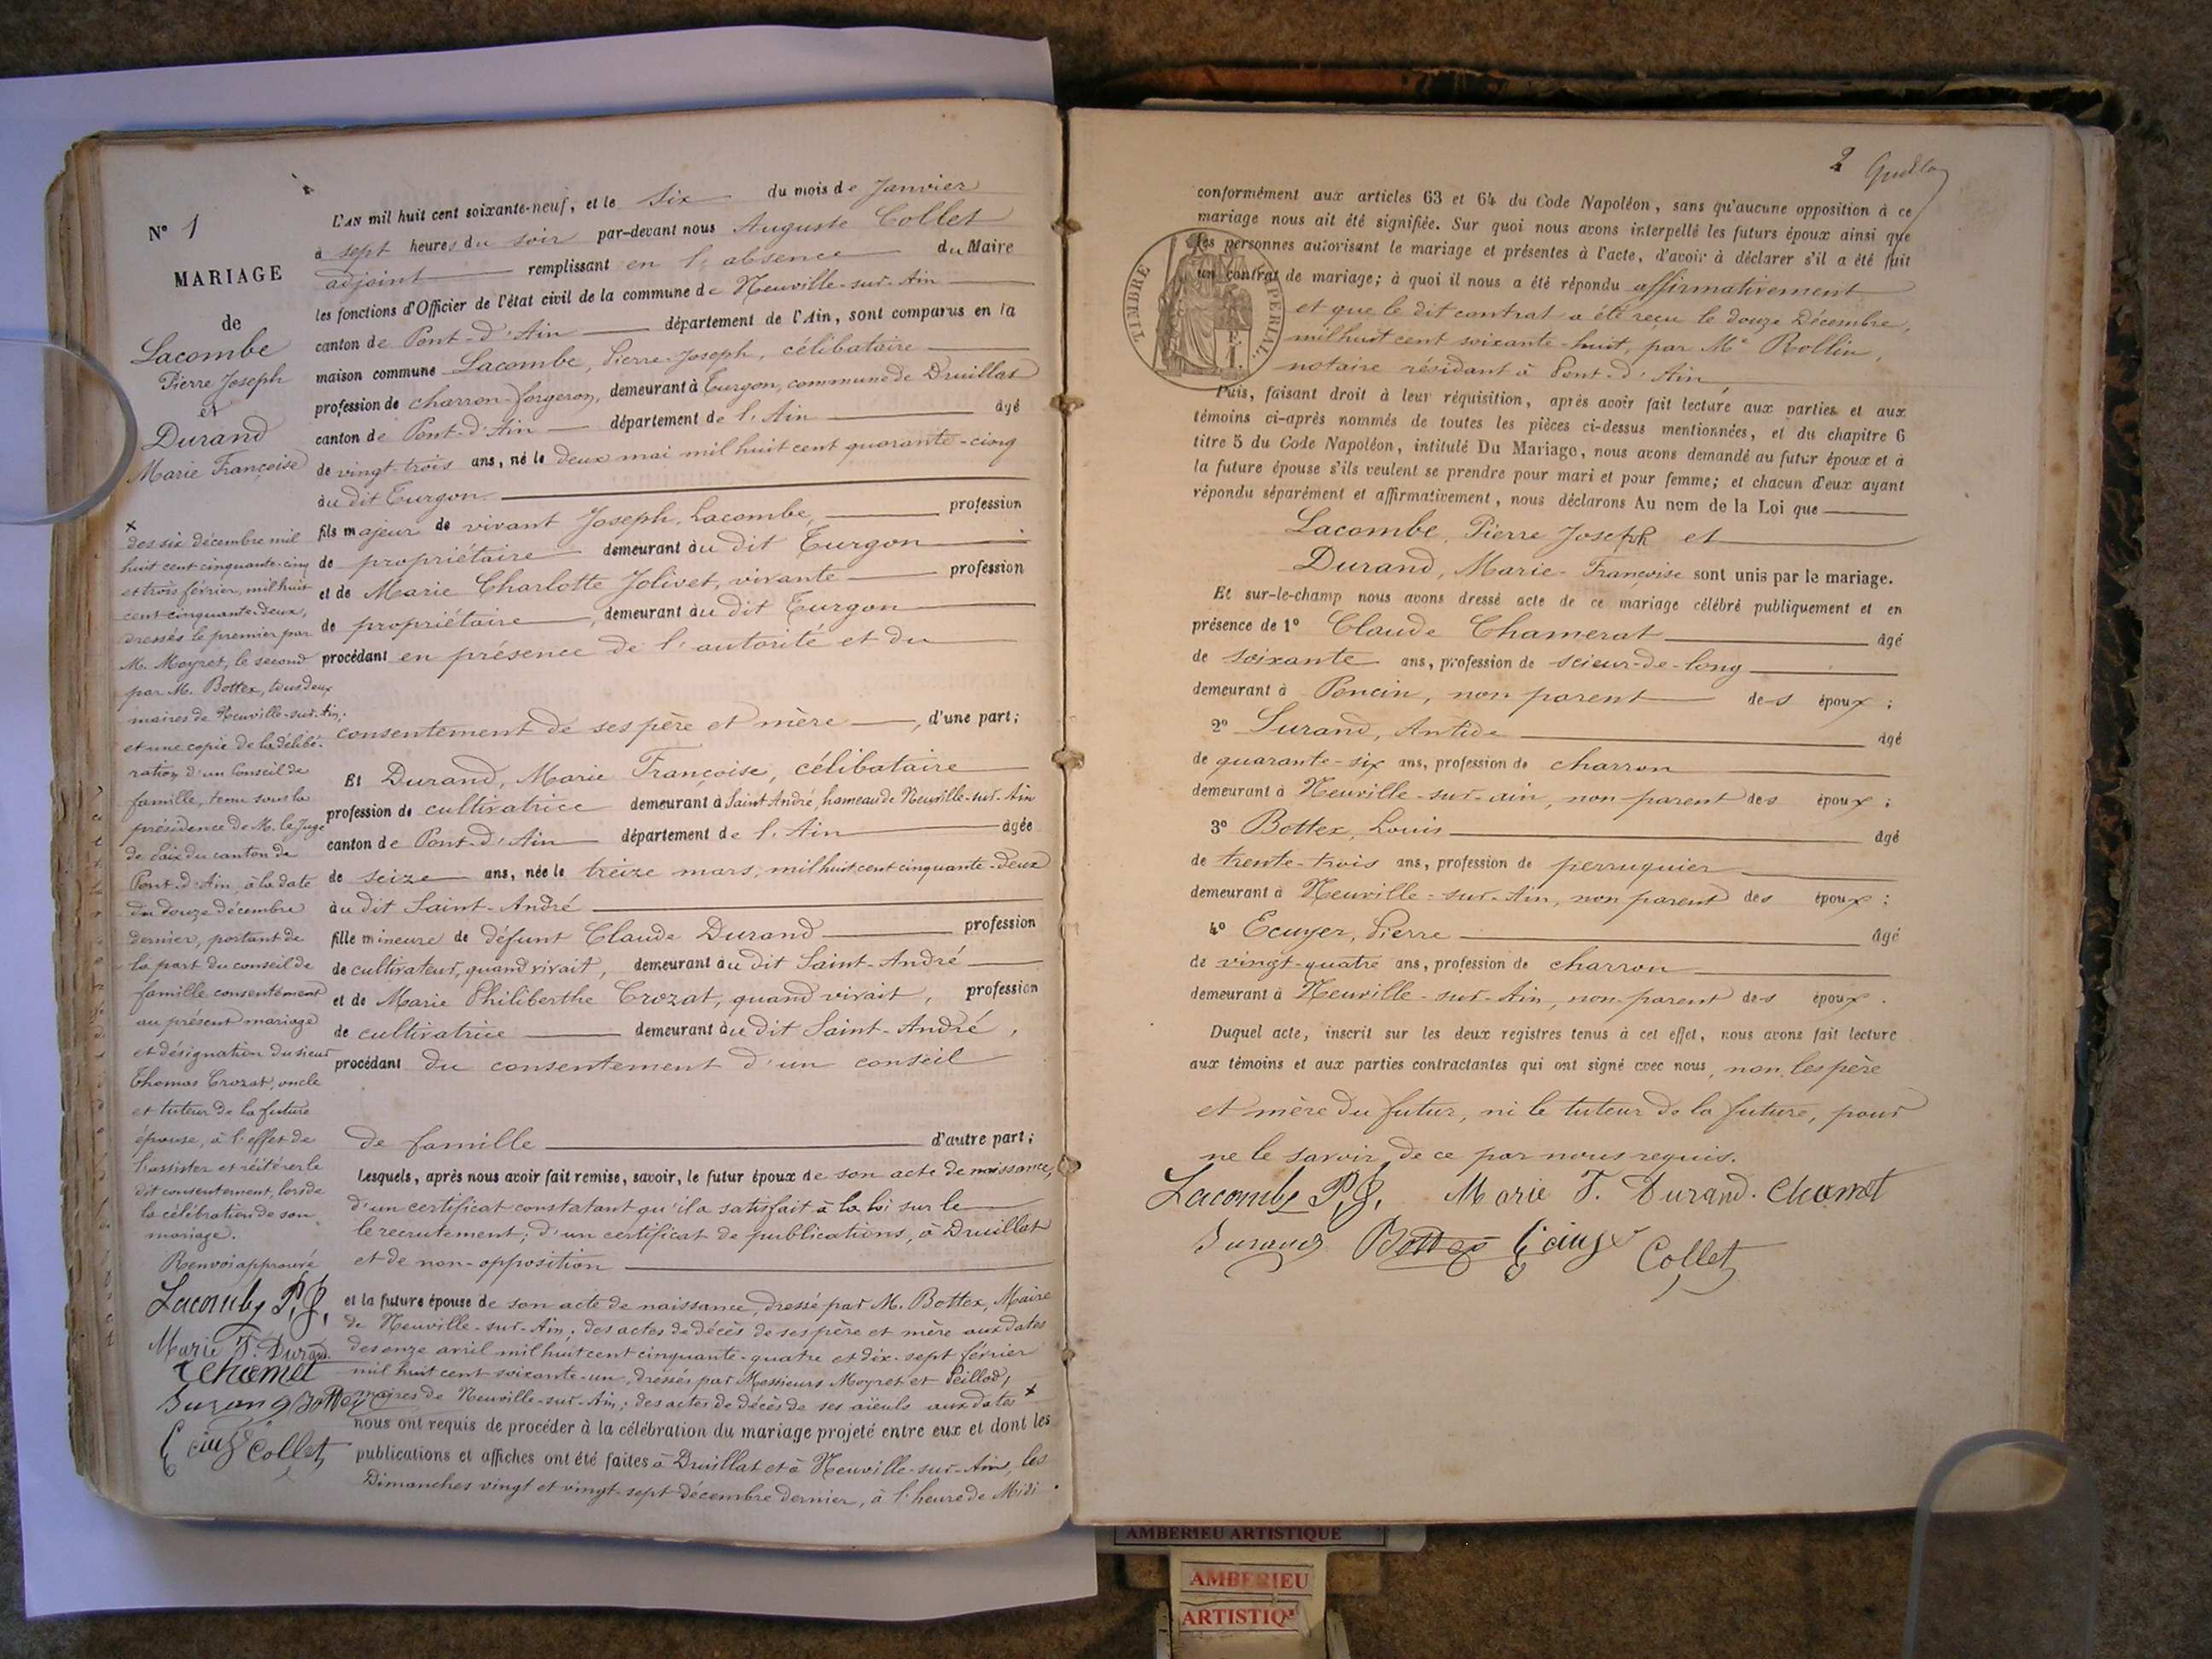 N° 1
MARIAGE
de
Lacombe
Pierre Joseph
et
Durand
Marie Françoise
L'AN mil huit cent soixante-neuf, et le six du mois de Janvier
à sept heures du soir par-devant nous Auguste Collet
adjoint remplissant en l'absence du Maire
les fonctions d'Officier de l'état civil de la commune de Neuville-sur-Ain
canton de Pont-d'Ain département de l'Ain, sont comparus en la
maison commune Lacombe, Pierre-Joseph, célibataire
profession de charron-forgeron, demeurant à Turgon, commune de Druillat
canton de Pont-d'Ain département de l'Ain âgé
de vingt-trois ans, né le deux mai mil huit cent quarante-cinq
au dit Turgon
fils majeur de vivant Joseph Lacombe, profession
de propriétaire demeurant au dit Turgon
et de Marie Charlotte Jolivet, vivante profession
de propriétaire, demeurant au dit Turgon
procédant en présence de l'autorité et du
consentement de ses père et mère, d'une part;
Et Durand, Marie Françoise, célibataire
profession de cultivatrice demeurant à Saint André, hameau de Neuville-sur-Ain
canton de Pont-d'Ain département de l'Ain âgée
de seize ans, née le treize mars, mil huit cent cinquante-deux
au dit Saint-André
fille mineure de défunt Claude Durand profession
de cultivateur, quand vivait, demeurant au dit Saint-André
et de Marie Philiberthe Crozat, quand vivait, profession
de cultivatrice demeurant au dit Saint-André,
procédant du consentement d'un conseil
de famille d'autre part;
Lesquels, après nous avoir fait remise, savoir, le futur époux de son acte de naissance,
d'un certificat constatant qu'il a satisfait à la loi sur le
le recrutement; d'un certificat de publications, à Druillat
et de non-opposition
et la future épouse de son acte de naissance, dressé par M. Bottex, Maire
de Neuville-sur-Ain; des actes de décès de ses père et mère aux dates
des onze avril mil huit cent cinquante-quatre et dix-sept février
mil huit cent soixante-un, dressés par Messieurs Moyret et Peillod,
maires de Neuville-sur-Ain; des actes de décès de ses aïeuls aux dates x
nous ont requis de procéder à la célébration du mariage projeté entre eux et dont les
publications et affiches ont été faites à Druillat et à Neuville-sur-Ain, les
Dimanches vingt et vingt-sept décembre dernier, à l'heure de Midi
x
des six décembre mil
huit cent cinquante-cinq
et trois février, mil huit
cent cinquante-deux,
dressés le premier par
M. Moyret, le second
par M. Bottex, tous deux
maires de Neuville-sur-Ain;
et une copie de la délibé-
ration d'un Conseil de
famille, tenu sous la
présidence de M. le Juge
de Paix du canton de
Pont-d'Ain, à la date
du douze décembre
dernier, portant de
la part du conseil de
famille consentement
au présent mariage
et désignation du sieur
Thomas Crozat, oncle
et tuteur de la future
épouse, à l'effet de
l'assister et réitérer le
dit consentement, lors de
la célébration de son
mariage.
Renvoi approuvé
Lacombe P. J.
Marie F. Durand
Chamet
Durand Bottex
Collet
2
conformément aux articles 63 et 64 du Code Napoléon, sans qu'aucune opposition à ce
mariage nous ait été signifiée. Sur quoi nous avons interpellé les futurs époux ainsi que
les personnes autorisant le mariage et présentes à l'acte, d'avoir à déclarer s'il a été fait
un contrat de mariage; à quoi il nous a été répondu affirmativement
et que le dit contrat a été reçu le douze Décembre,
mil huit cent soixante-huit, par Me Rollin,
notaire résidant à Pont-d'Ain
TIMBRE IMPÉRIAL
Puis, faisant droit à leur réquisition, après avoir fait lecture aux parties et aux
témoins ci-après nommés de toutes les pièces ci-dessus mentionnées, et du chapitre 6
titre 5 du Code Napoléon, intitulé Du Mariage, nous avons demandé au futur époux et à
la future épouse s'ils veulent se prendre pour mari et pour femme; et chacun d'eux ayant
répondu séparément et affirmativement, nous déclarons Au nom de la Loi que
Lacombe, Pierre Joseph et
Durand, Marie-Françoise sont unis par le mariage.
Et sur-le-champ nous avons dressé acte de ce mariage célébré publiquement et en
présence de 1° Claude Chamerat âgé
de soixante ans, profession de scieur-de-long
demeurant à Poncin, non parent des époux;
2° Durand, Antide âgé
de quarante-six ans, profession de charron
demeurant à Neuville-sur-ain, non-parent des époux;
3° Bottex, Louis âgé
de trente-trois ans, profession de perruquier
demeurant à Neuville-sur-Ain, non parent des époux;
4° Ecuyer, Pierre âgé
de vingt-quatre ans, profession de charron
demeurant à Neuville-sur-Ain, non-parent des époux.
Duquel acte, inscrit sur les deux registres tenus à cet effet, nous avons fait lecture
aux témoins et aux parties contractantes qui ont signé avec nous, non les père
et mère du futur, ni le tuteur de la future, pour
ne le savoir, de ce par nous requis.
Lacombe P. J. Marie F. Durand. Chamet
Durand Bottex Collet
AMBERIEU ARTISTIQUE
AMBERIEU
ARTISTIQ